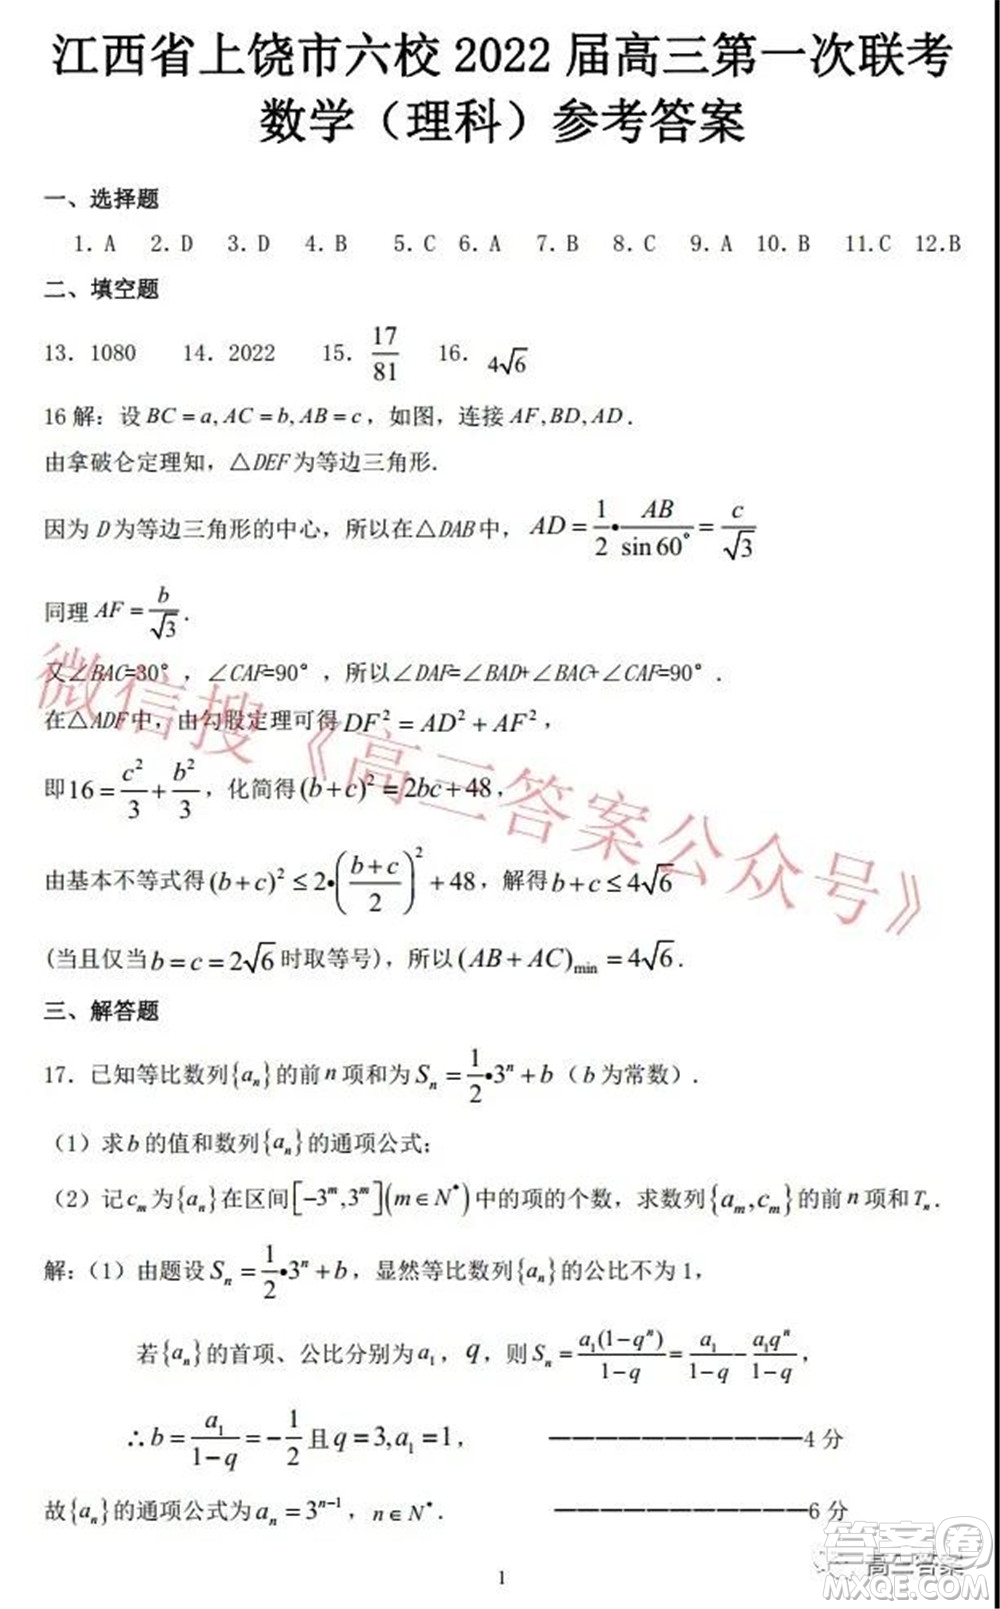 江西省上饶市六校 2022 届高三第一次联考
数学（理科）参考答案
一、选择题
1. A 2. D 3. D 4. B 5. C 6. A 7. B 8. C 9. A 10. B 11.C 12.B
二、填空题
13. 1080 14. 2022 15. 17/81 16. 4√6
16 解：设 BC = a, AC = b, AB = c，如图，连接 AF, BD, AD.
由拿破仑定理知，△DEF 为等边三角形.
因为 D 为等边三角形的中心，所以在△DAB 中，AD = 1/2 • AB/sin 60° = c/√3
同理 AF = b/√3.
又∠BAC=30°，∠CAF=90°，所以∠DAF=∠BAD+∠BAC+∠CAF=90°.
在△ADF 中，由勾股定理可得 DF² = AD² + AF²，
即 16 = c²/3 + b²/3，化简得 (b + c)² = 2bc + 48，
由基本不等式得 (b + c)² ≤ 2•((b + c)/2)² + 48，解得 b + c ≤ 4√6
(当且仅当 b = c = 2√6 时取等号)，所以 (AB + AC)min = 4√6.
三、解答题
17. 已知等比数列{aₙ}的前 n 项和为 Sₙ = 1/2 • 3ⁿ + b（b 为常数）.
（1）求 b 的值和数列{aₙ}的通项公式；
（2）记 cₘ 为{aₙ}在区间[-3ᵐ, 3ᵐ](m ∈ N*)中的项的个数，求数列{aₘ, cₘ}的前 n 项和 Tₙ.
解：（1）由题设 Sₙ = 1/2 • 3ⁿ + b，显然等比数列{aₙ}的公比不为 1，
若{aₙ}的首项、公比分别为 a₁，q，则 Sₙ = a₁(1-qⁿ)/(1-q) = a₁/(1-q) - a₁qⁿ/(1-q)，
∴ b = a₁/(1-q) = -1/2 且 q = 3, a₁ = 1， ———————————4 分
故{aₙ}的通项公式为 aₙ = 3ⁿ⁻¹，n ∈ N*. ———————————6 分
1
微信搜《高三答案公众号》
高三答案
答案圈
MXQE.COM